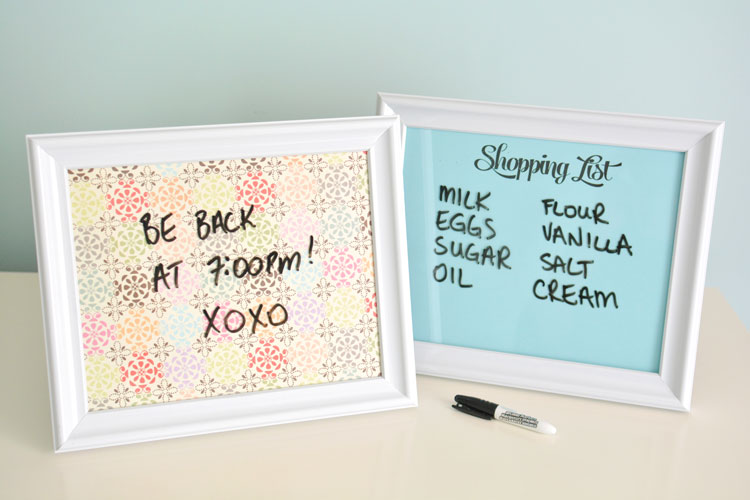 BE BACK
AT 7:00PM!
XOXO
Shopping List
MILK
EGGS
SUGAR
OIL
FLOUR
VANILLA
SALT
CREAM